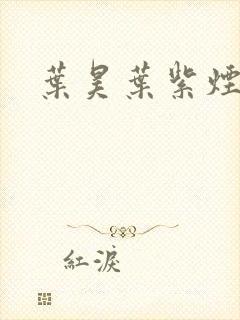 葉昊葉紫煙
紅淚